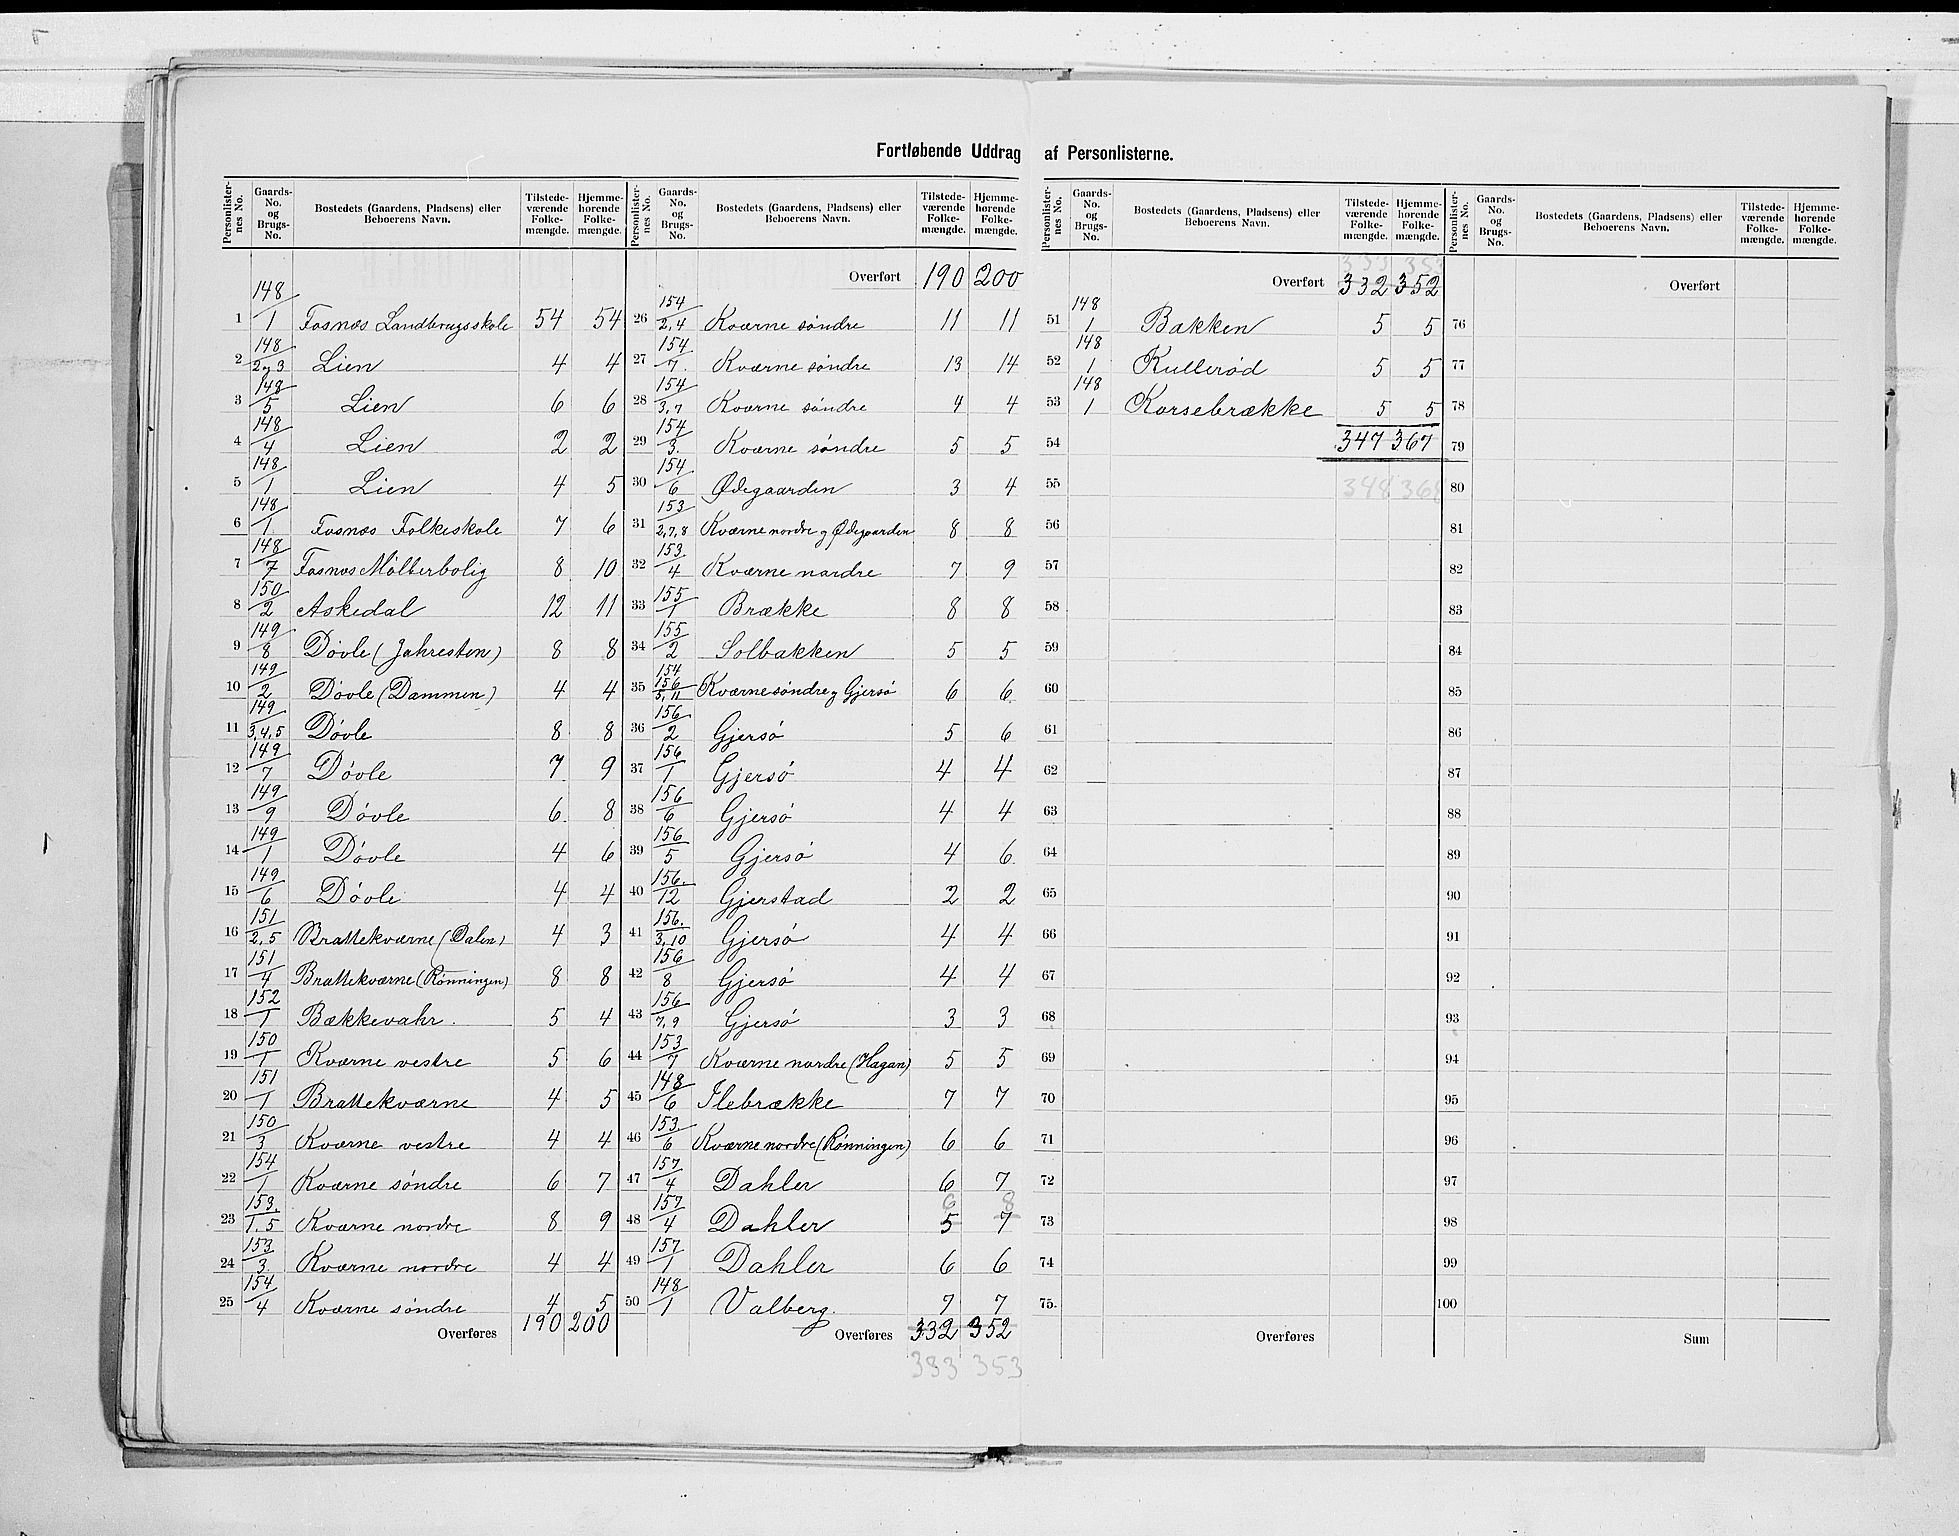 Fortløbende Uddrag af Personlisterne.
Personlisternes No. | Gaards-No. og Brugs-No. | Bostedets (Gaardens, Pladsens) eller Beboerens Navn. | Tilstedeværende Folkemængde. | Hjemmehørende Folkemængde.
1 148/1 Fosnæs Landbrugsskole 54 54
2 148/2 og 3 Lien 4 4
3 148/5 Lien 6 6
4 148/4 Lien 2 2
5 148/1 Lien 4 5
6 148/1 Fosnæs Folkeskole 7 6
7 148/7 Fosnæs Mølterbolig 8 10
8 150/2 Askedal 12 11
9 149/8 Døvle (Jahresten) 8 8
10 149/2 Døvle (Dammen) 4 4
11 149/3,4,5 Døvle 8 8
12 149/7 Døvle 7 9
13 149/9 Døvle 6 8
14 149/1 Døvle 4 6
15 149/6 Døvle 4 4
16 151/2,5 Brattekværne (Dalen) 4 3
17 151/4 Brattekværne (Rønningen) 8 8
18 152/1 Bækkevahr. 5 4
19 150/1 Kværne vestre 5 6
20 151/1 Brattekværne 4 5
21 150/3 Kværne vestre 4 4
22 154/1 Kværne søndre 6 7
23 153./1.5 Kværne nordre 8 9
24 153/3. Kværne nordre 4 4
25 154/4 Kværne søndre 4 5
Overføres 190 200
Personlisternes No. | Gaards-No. og Brugs-No. | Bostedets (Gaardens, Pladsens) eller Beboerens Navn. | Tilstedeværende Folkemængde. | Hjemmehørende Folkemængde.
Overført 190 200
26 154/2,4 Kværne søndre 11 11
27 154/7. Kværne søndre 13 14
28 154/3,7 Kværne søndre 4 4
29 154/3. Kværne søndre 5 5
30 154/6 Ødegaarden 3 4
31 153/2,7,8 Kværne nordre og Ødegaarden 8 8
32 153./4 Kværne nordre 7 9
33 155/1 Brække 8 8
34 155/2 Solbakken 5 5
35 154/156/5,11 Kværne søndre og Gjersø 6 6
36 156/2 Gjersø 5 6
37 156/1 Gjersø 4 4
38 156/6 Gjersø 4 4
39 156/5 Gjersø 4 6
40 156./12 Gjerstad 2 2
41 156./3,10 Gjersø 4 4
42 156/8 Gjersø 4 4
43 156/7,9 Gjersø 3 3
44 153/7 Kværne nordre (Hagan) 5 5
45 148/6 Ilebrække 7 7
46 153./6 Kværne nordre (Rønningen) 6 6
47 157/4 Dahler 6 7
6 8
48 157/4 Dahler 5 7
49 157/1 Dahler 6 6
50 148/1 Valberg. 7 7
Overføres 332 352
333 353
Personlisternes No. | Gaards-No. og Brugs-No. | Bostedets (Gaardens, Pladsens) eller Beboerens Navn. | Tilstedeværende Folkemængde. | Hjemmehørende Folkemængde.
333 353
Overført 332 352
51 148/1 Bakken 5 5
52 148/1 Kullerød 5 5
53 148/1 Korsebrække 5 5
54 347 367
55 348 368
56
57
58
59
60
61
62
63
64
65
66
67
68
69
70
71
72
73
74
75.
Overføres
Personlisternes No. | Gaards-No. og Brugs-No. | Bostedets (Gaardens, Pladsens) eller Beboerens Navn. | Tilstedeværende Folkemængde. | Hjemmehørende Folkemængde.
Overført
76
77
78
79
80
81
82
83
84
85
86
87
88
89
90
91
92
93
94
95
96
97
98
99
100
Sum